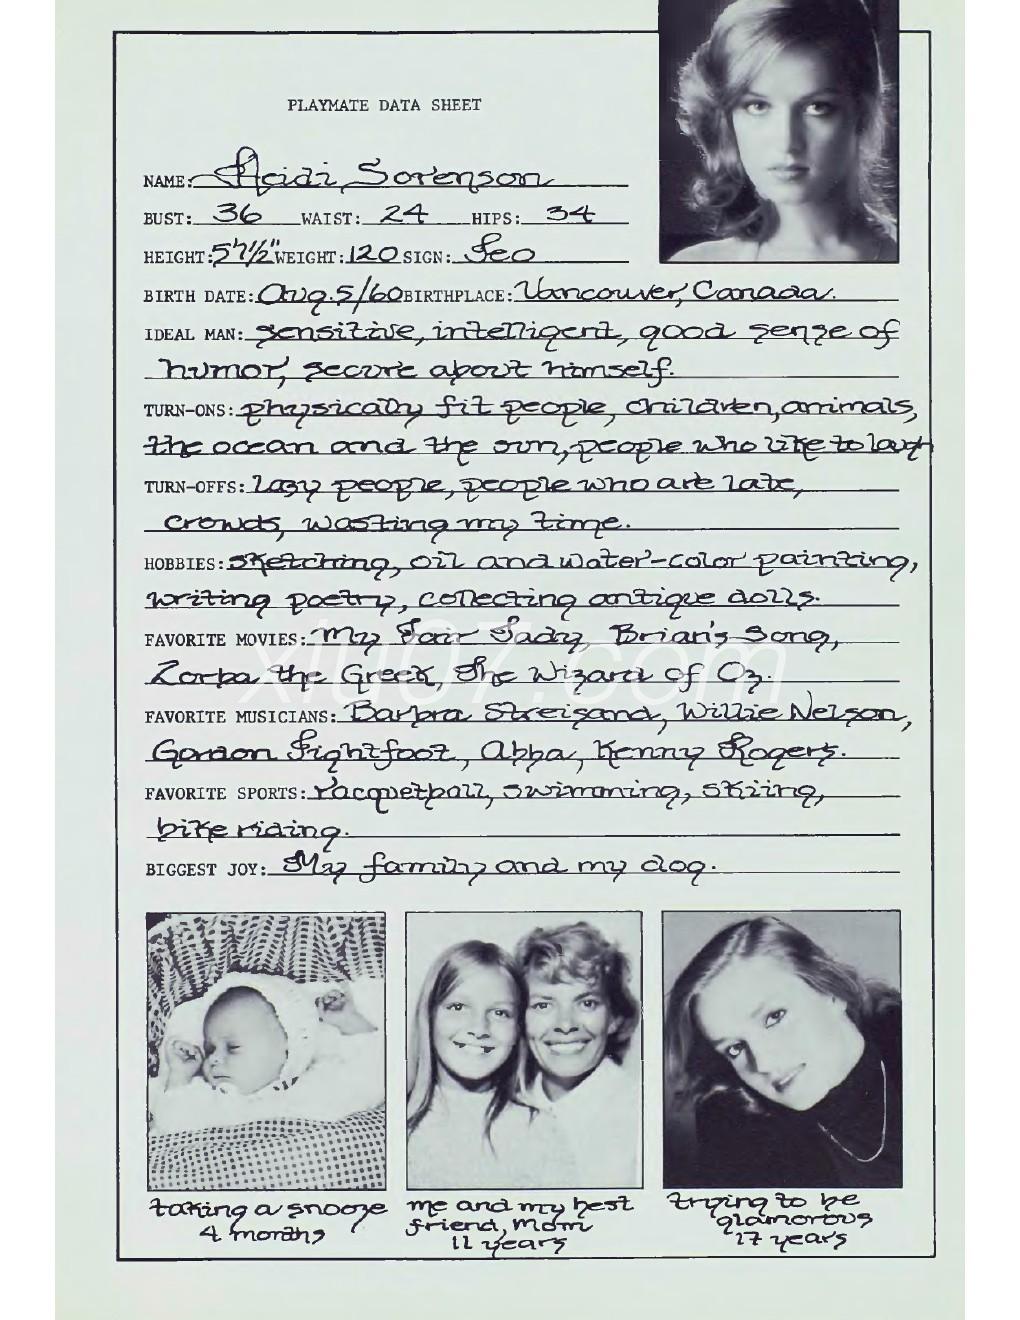 PLAYMATE DATA SHEET
NAME: Heidi Sorenson
BUST: 36 WAIST: 24 HIPS: 34
HEIGHT: 5'7½" WEIGHT: 120 SIGN: Leo
BIRTH DATE: Aug. 5/60 BIRTHPLACE: Vancouver, Canada.
IDEAL MAN: sensitive, intelligent, good sense of
humor, secure about himself.
TURN-ONS: physically fit people, children, animals,
the ocean and the sun, people who like to laugh
TURN-OFFS: lazy people, people who are late,
crowds, wasting my time.
HOBBIES: sketching, oil and water-color painting,
writing poetry, collecting antique dolls.
FAVORITE MOVIES: My Fair Lady, Brian's Song,
Zorba the Greek, The Wizard of Oz.
xiu07.com
FAVORITE MUSICIANS: Barbra Streisand, Willie Nelson,
Gordon Lightfoot, Abba, Kenny Rogers.
FAVORITE SPORTS: racquetball, swimming, skiing,
bike riding.
BIGGEST JOY: My family and my dog.
taking a snooze
4 months
me and my best
friend, Mom
11 years
trying to be
glamorous
17 years